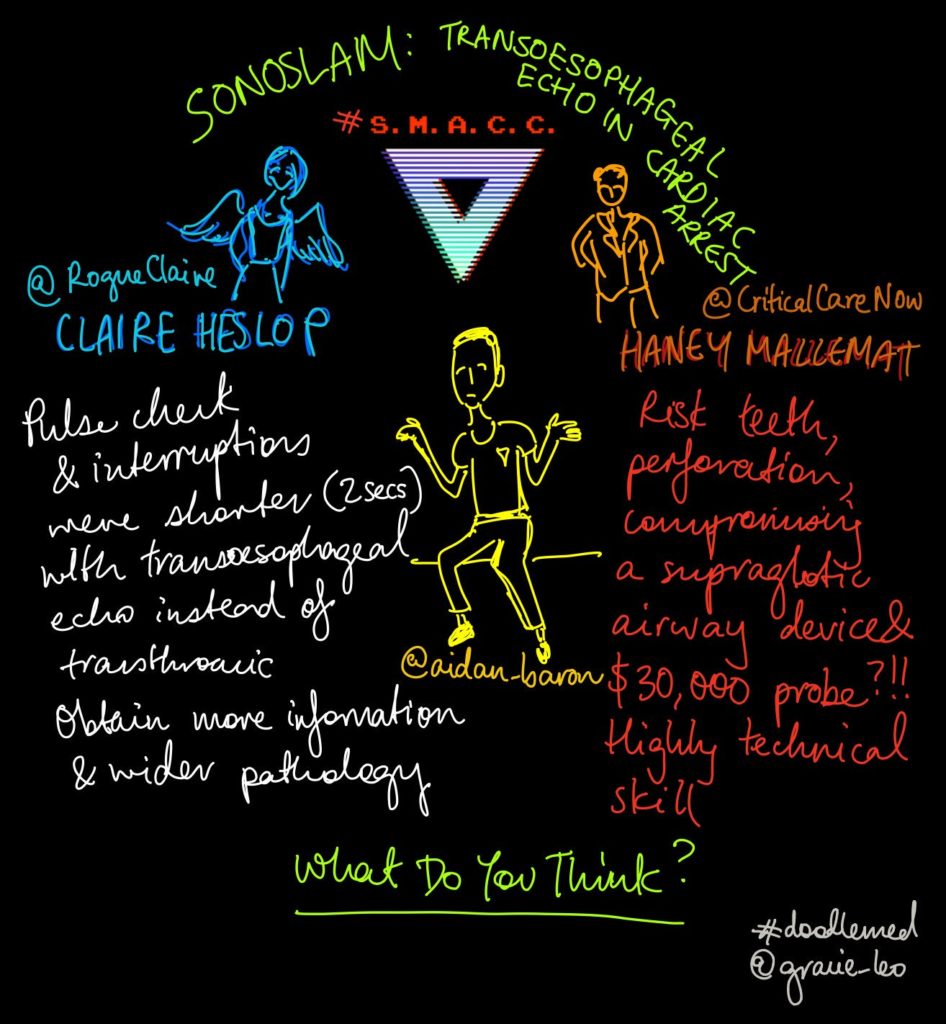 SONOSLAM: TRANSOESOPHAGEAL
ECHO IN CARDIAC
ARREST
#S.M.A.C.C.
@RogueClaire
CLAIRE HESLOP
@CriticalCareNow
HANEY MALLEMAT
Pulse check
& interruptions
were shorter (2secs)
with transoesophageal
echo instead of
transthroacic
Obtain more infomation
& wider pathology
@aidan_baron
Risk teeth,
perforation,
compromising
a supraglotic
airway device &
$30,000 probe?!!
Highly technical
skill
What Do You Think?
#doodlemed
@gracie_leo